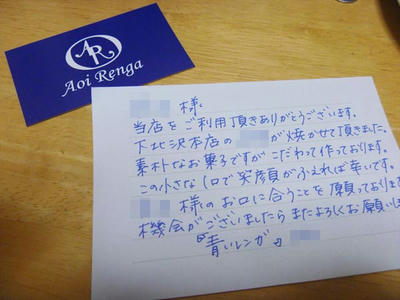 AR
Aoi Renga
様
当店をご利用頂きありがとうございます。
下北沢本店の が焼かせて頂きました。
素朴なお菓子ですがこだわって作っております。
この小さな1口で笑顔がふえれば幸いです。
様のお口に合うことを願っております
機会がございましたらまたよろしくお願いし
青いレンガ